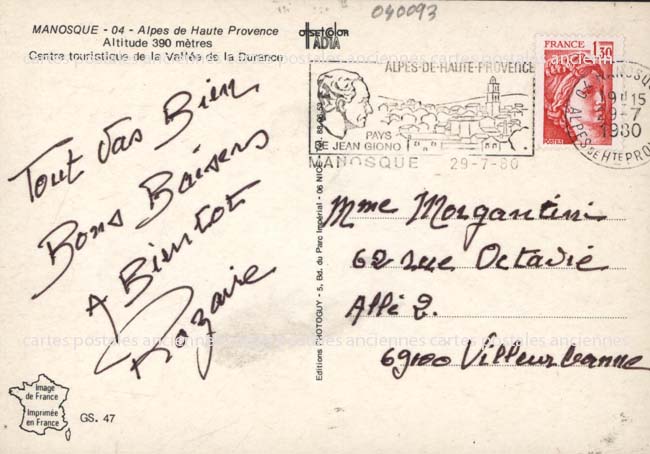 040093
MANOSQUE - 04 - Alpes de Haute Provence
Altitude 390 mètres
Centre touristique de la Vallée de la Durance
cartes postales anciennes cartes postales anciennes
Tout vas Bien
Bons Baisers
A Bientot
Image
de France
Imprimée
en France
GS. 47
Editions PHOTOGUY - 5, Bd. du Parc Impérial - 06 NICE
ALPES-DE-HAUTE-PROVENCE
PAYS
DE JEAN GIONO
MANOSQUE 29-7-80
FRANCE
1,30
POSTES
MANOSQUE
19H15
29-7
1980
ALPES DE HTE PROV
Mme Morgantini
62 rue Octavie
Allé 2.
69100 Villeurbanne
cartes postales anciennes cartes postales anciennes